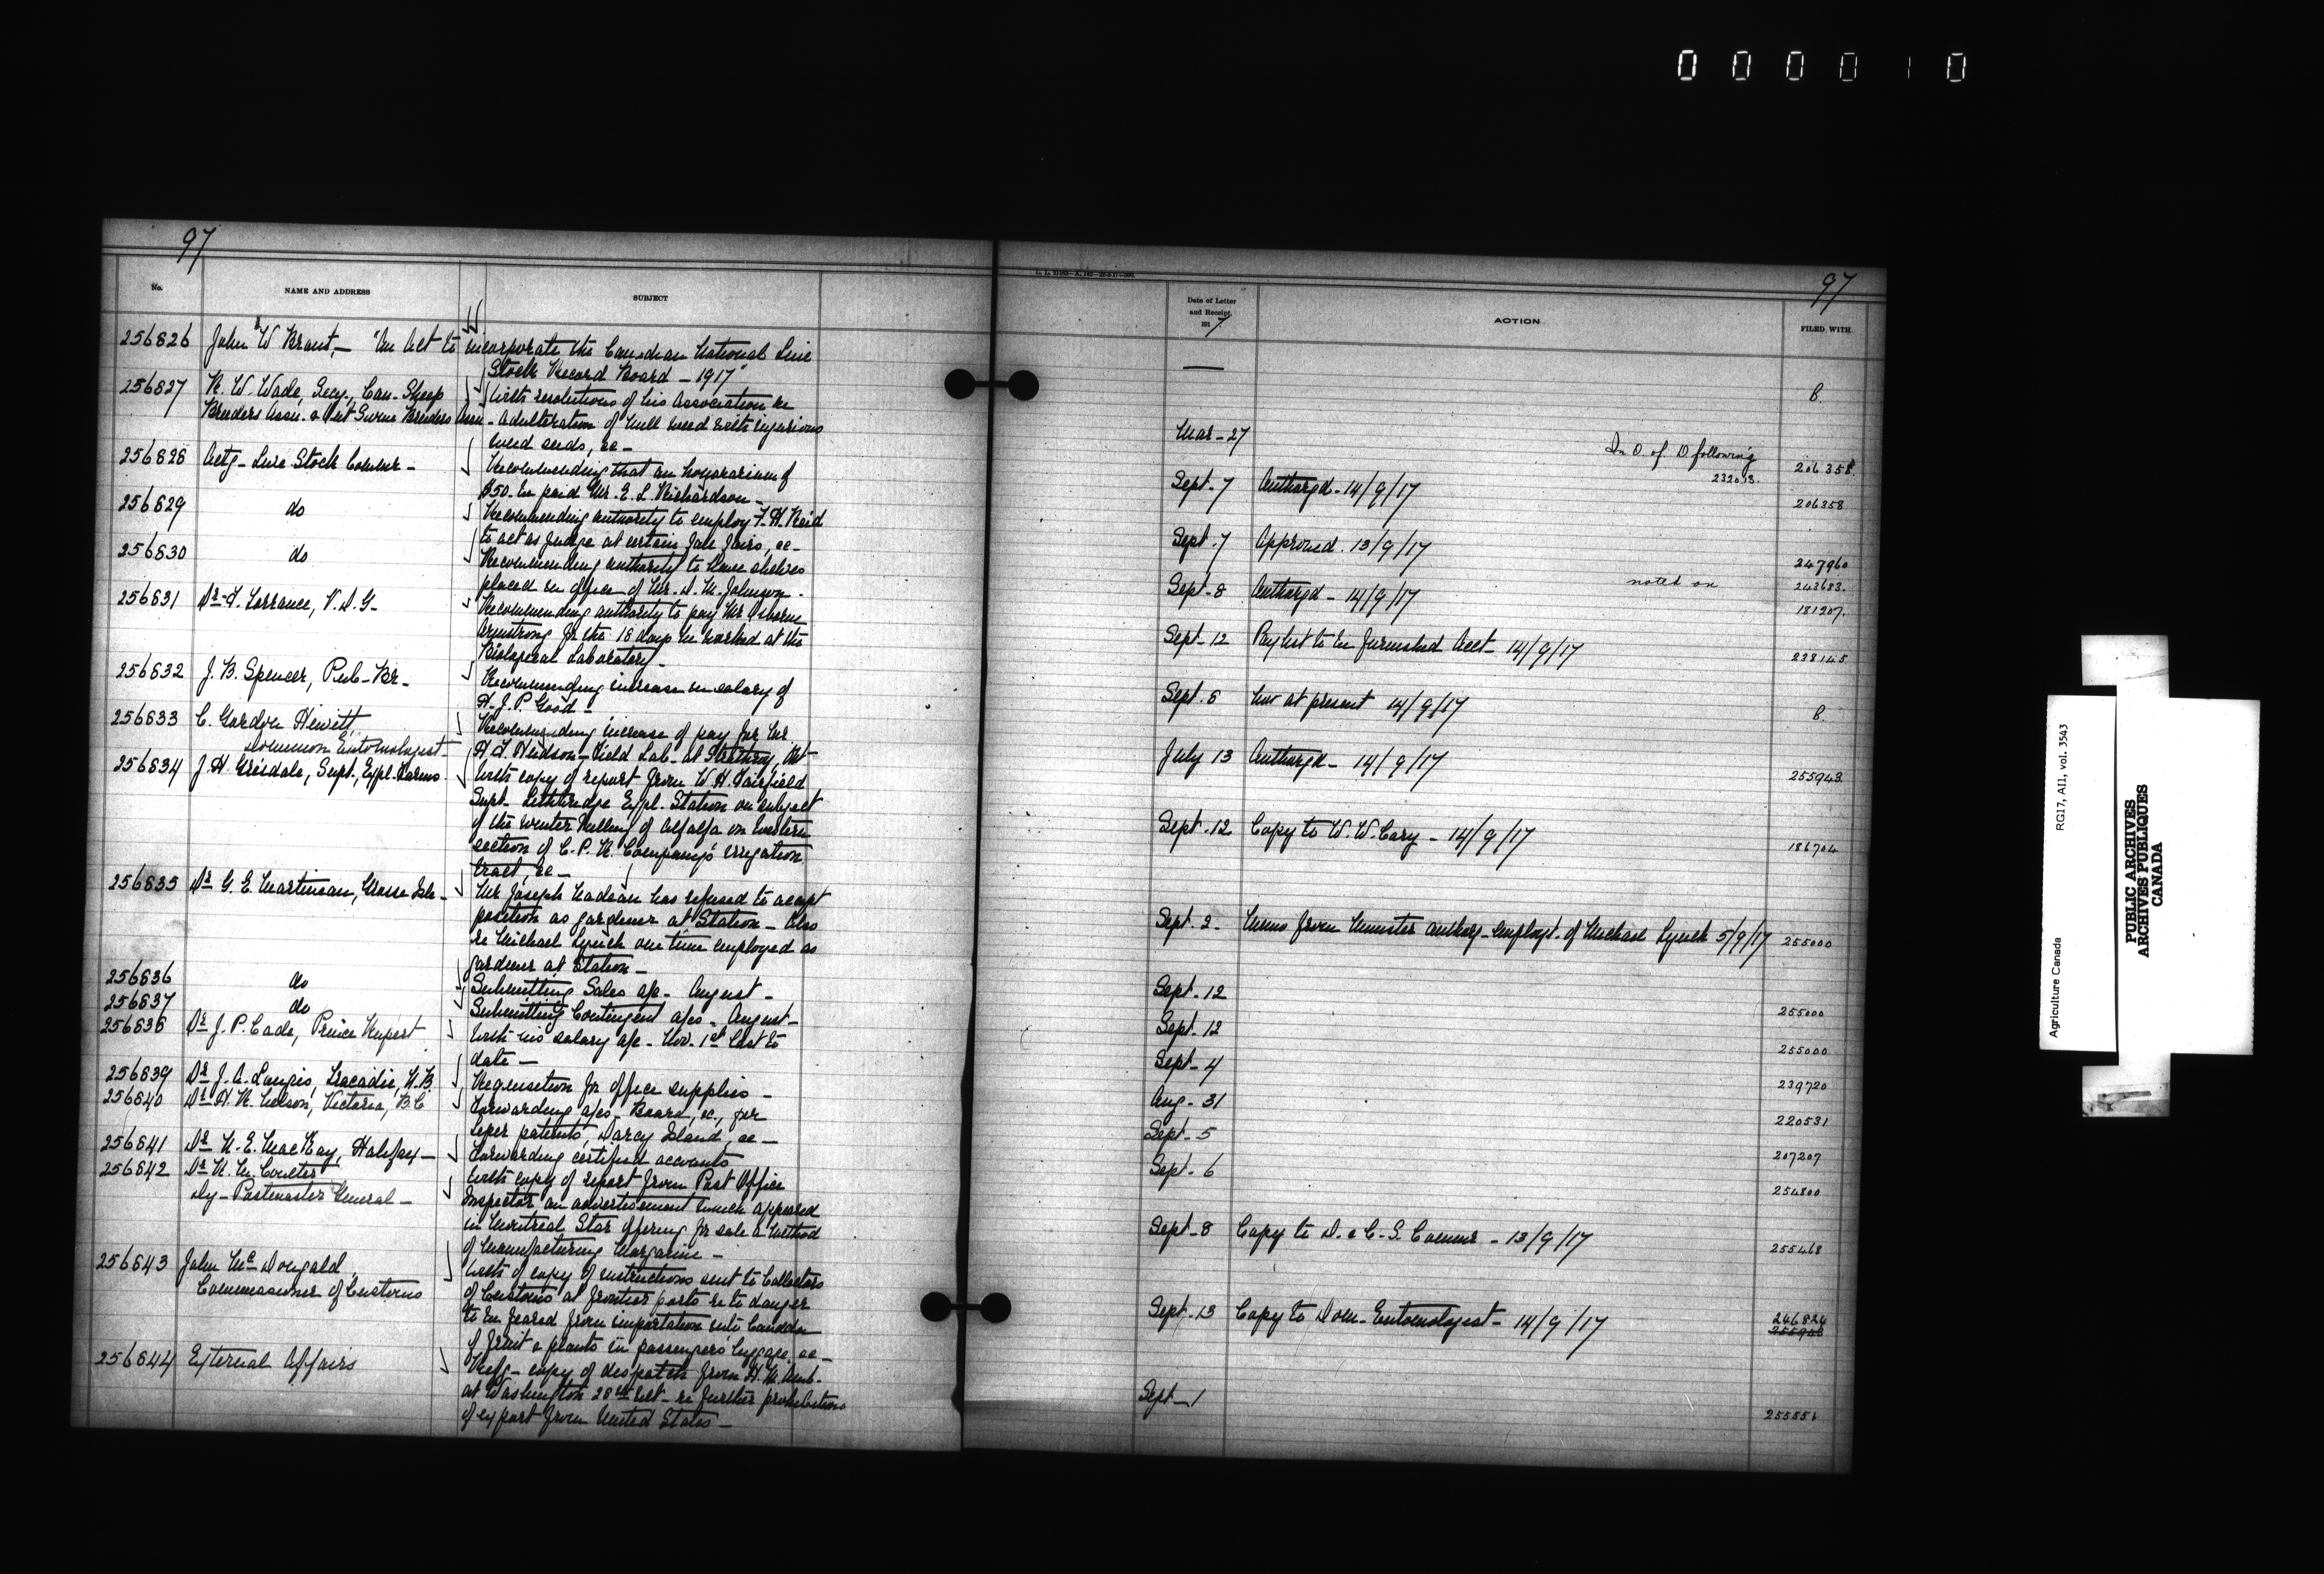 000010
97
No.
NAME AND ADDRESS
SUBJECT
256826 John W Brant, — "An Act to incorporate the Canadian National Live
Stock Record Board — 1917"
256827 R. W. Wade, Secy., Can. Sheep With resolutions of his Association re
Breeders Assn. & Ont Swine Breeders Assn — adulteration of mill feed with injurious
weed seeds, &c —
256828 Actg — Live Stock Commr — Recommending that an honorarium of
$50. be paid Mr. E. L. Richardson —
256829 do Recommending authority to employ F. H. Reid
to act as judge at certain Fall Fairs, &c —
256830 do Recommending authority to have shelves
placed in office of Mr. D. M. Johnson —
256831 Dr F. Torrance, V. D. G — Recommending authority to pay Mr Osborne
Armstrong for the 18 days he worked at the
Biological Laboratory —
256832 J. B. Spencer, Pub — Br — Recommending increase in salary of
H. J. P. Good —
256833 C. Gordon Hewitt, Recommending increase of pay for Mr
Dominion Entomologist H. F. Hudson — Field Lab — at Strathroy, Ont
256834 J. H. Grisdale, Supt., Expl. Farms — With copy of report from W. H. Fairfield
Supt — Lethbridge Expl. Station on subject
of the winter killing of alfalfa on Western
section of C. P. R. Company's irrigation
tract, &c —
256835 Dr G. E. Martineau, Grosse Isle — Mr Joseph Nadeau has refused to accept
position as gardener at Station — Also
re Michael Lynch one time employed as
gardener at Station —
256836 do Submitting Sales a/c — August —
256837 do Submitting Contingent a/cs — August —
256838 Dr J. P. Cade, Prince Rupert With his salary a/c — Nov. 1st last to
date —
256839 Dr J. A. Langis, Tracadie, N. B. Requisition for office supplies —
256840 Dr H. R. Nelson, Victoria, B. C. Forwarding a/cs — Board, &c., for
leper patients, Darcy Island, &c —
256841 Dr N. E. MacKay, Halifax — Forwarding certified accounts
256842 Dr R. M. Coulter With copy of report from Post Office
Dy — Postmaster General — Inspector on advertisement which appeared
in Montreal Star offering for sale a method
of manufacturing Margarine —
256843 John McDougald, With of copy of instructions sent to Collectors
Commissioner of Customs of Customs at frontier ports re to danger
to be feared from importation into Canada
of fruit & plants in passengers luggage, &c —
256844 External Affairs copy of despatch from H. M. Amb.
at Washington 28th ult — re further prohibitions
of export from United States —
97
Date of Letter
and Receipt,
1917
ACTION
FILED WITH
— B.
Mar — 27 In O. of D following 206358
232013.
Sept. 7 Authorzd — 14/9/17 206358
Sept. 7 Approved. 13/9/17 247960
Sept. 8 Authorzd — 14/9/17 noted on 243683.
181207.
Sept — 12 Paylist to be furnished Acct — 14/9/17 238145
Sept. 8 Not at present 14/9/17 B.
July 13 Authorzd — 14/9/17 255943.
Sept. 12 Copy to W. W. Cory — 14/9/17 186704
Sept. 2 — Memo from Minister authorg — employt. of Michael Lynch 5/9/17 255000
Sept. 12 255000
Sept. 12 255000
Sept — 4 239720
Aug — 31 220531
Sept — 5 207207
Sept — 6 254800
Sept — 8 Copy to D. & C. S. Commr — 13/9/17 255468
Sept — 13 Copy to Dom — Entomologist — 14/9/17 246824
Sept — 1 255551
Agriculture Canada RG17, AII, vol. 3543
PUBLIC ARCHIVES
ARCHIVES PUBLIQUES
CANADA